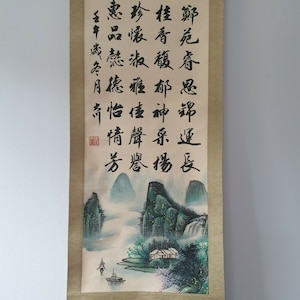 鄭苑睿思錦運長
桂香馥郁神采揚
珍懷淑雅佳聲譽
惠品懿德怡情芳
壬午歲冬月